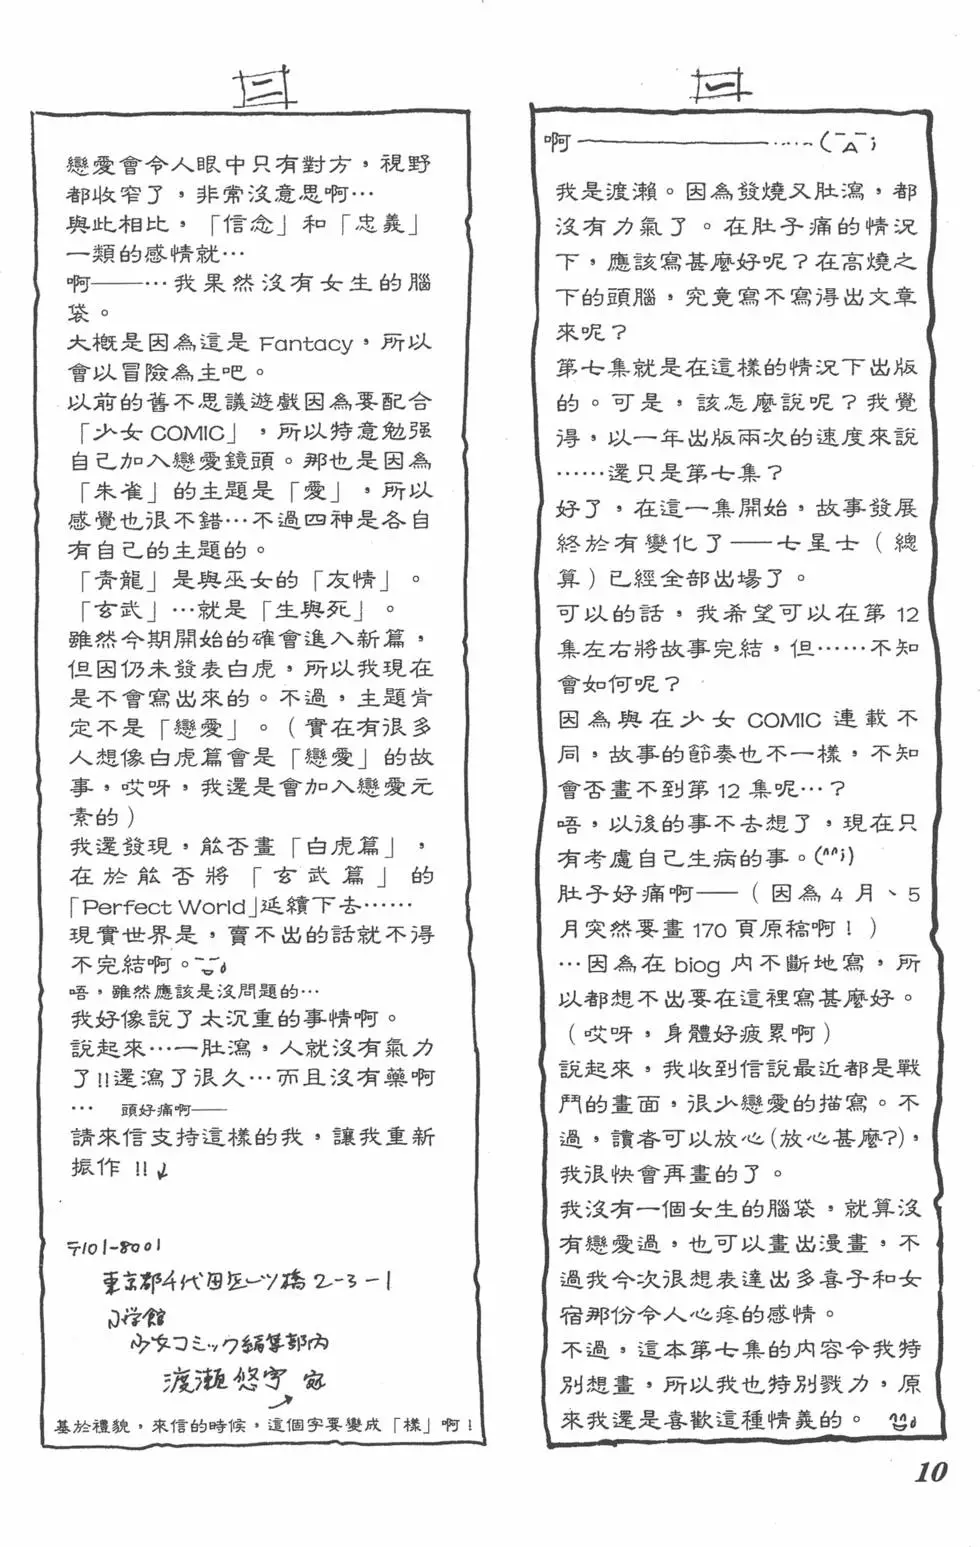 一
啊————……(￣A￣;
我是渡瀨。因為發燒又肚瀉，都
沒有力氣了。在肚子痛的情況
下，應該寫甚麼好呢？在高燒之
下的頭腦，究竟寫不寫得出文章
來呢？
第七集就是在這樣的情況下出版
的。可是，該怎麼說呢？我覺
得，以一年出版兩次的速度來說
……還只是第七集？
好了，在這一集開始，故事發展
終於有變化了——七星士（總
算）已經全部出場了。
可以的話，我希望可以在第 12
集左右將故事完結，但……不知
會如何呢？
因為與在少女 COMIC 連載不
同，故事的節奏也不一樣，不知
會否畫不到第 12 集呢…？
唔，以後的事不去想了，現在只
有考慮自己生病的事。(^^;)
肚子好痛啊——（因為 4 月、5
月突然要畫 170 頁原稿啊！）
…因為在 biog 內不斷地寫，所
以都想不出要在這裡寫甚麼好。
（哎呀，身體好疲累啊）
說起來，我收到信說最近都是戰
鬥的畫面，很少戀愛的描寫。不
過，讀者可以放心(放心甚麼?)，
我很快會再畫的了。
我沒有一個女生的腦袋，就算沒
有戀愛過，也可以畫出漫畫，不
過我今次很想表達出多喜子和女
宿那份令人心疼的感情。
不過，這本第七集的內容令我特
別想畫，所以我也特別戮力，原
來我還是喜歡這種情義的。
二
戀愛會令人眼中只有對方，視野
都收窄了，非常沒意思啊…
與此相比，「信念」和「忠義」
一類的感情就…
啊——…我果然沒有女生的腦
袋。
大概是因為這是 Fantacy，所以
會以冒險為主吧。
以前的舊不思議遊戲因為要配合
「少女 COMIC」，所以特意勉强
自己加入戀愛鏡頭。那也是因為
「朱雀」的主題是「愛」，所以
感覺也很不錯…不過四神是各自
有自己的主題的。
「青龍」是與巫女的「友情」。
「玄武」…就是「生與死」。
雖然今期開始的確會進入新篇，
但因仍未發表白虎，所以我現在
是不會寫出來的。不過，主題肯
定不是「戀愛」。（實在有很多
人想像白虎篇會是「戀愛」的故
事，哎呀，我還是會加入戀愛元
素的）
我還發現，能否畫「白虎篇」，
在於能否將「玄武篇」的
「Perfect World」延續下去……
現實世界是，賣不出的話就不得
不完結啊。
唔，雖然應該是沒問題的…
我好像說了太沉重的事情啊。
說起來…一肚瀉，人就沒有氣力
了!!還瀉了很久…而且沒有藥啊
… 頭好痛啊——
請來信支持這樣的我，讓我重新
振作 !!↓
〒101-8001
東京都千代田区一ツ橋2-3-1
小学館
少女コミック編集部内
渡瀬悠宇 宛
基於禮貌，來信的時候，這個字要變成「樣」啊！
10